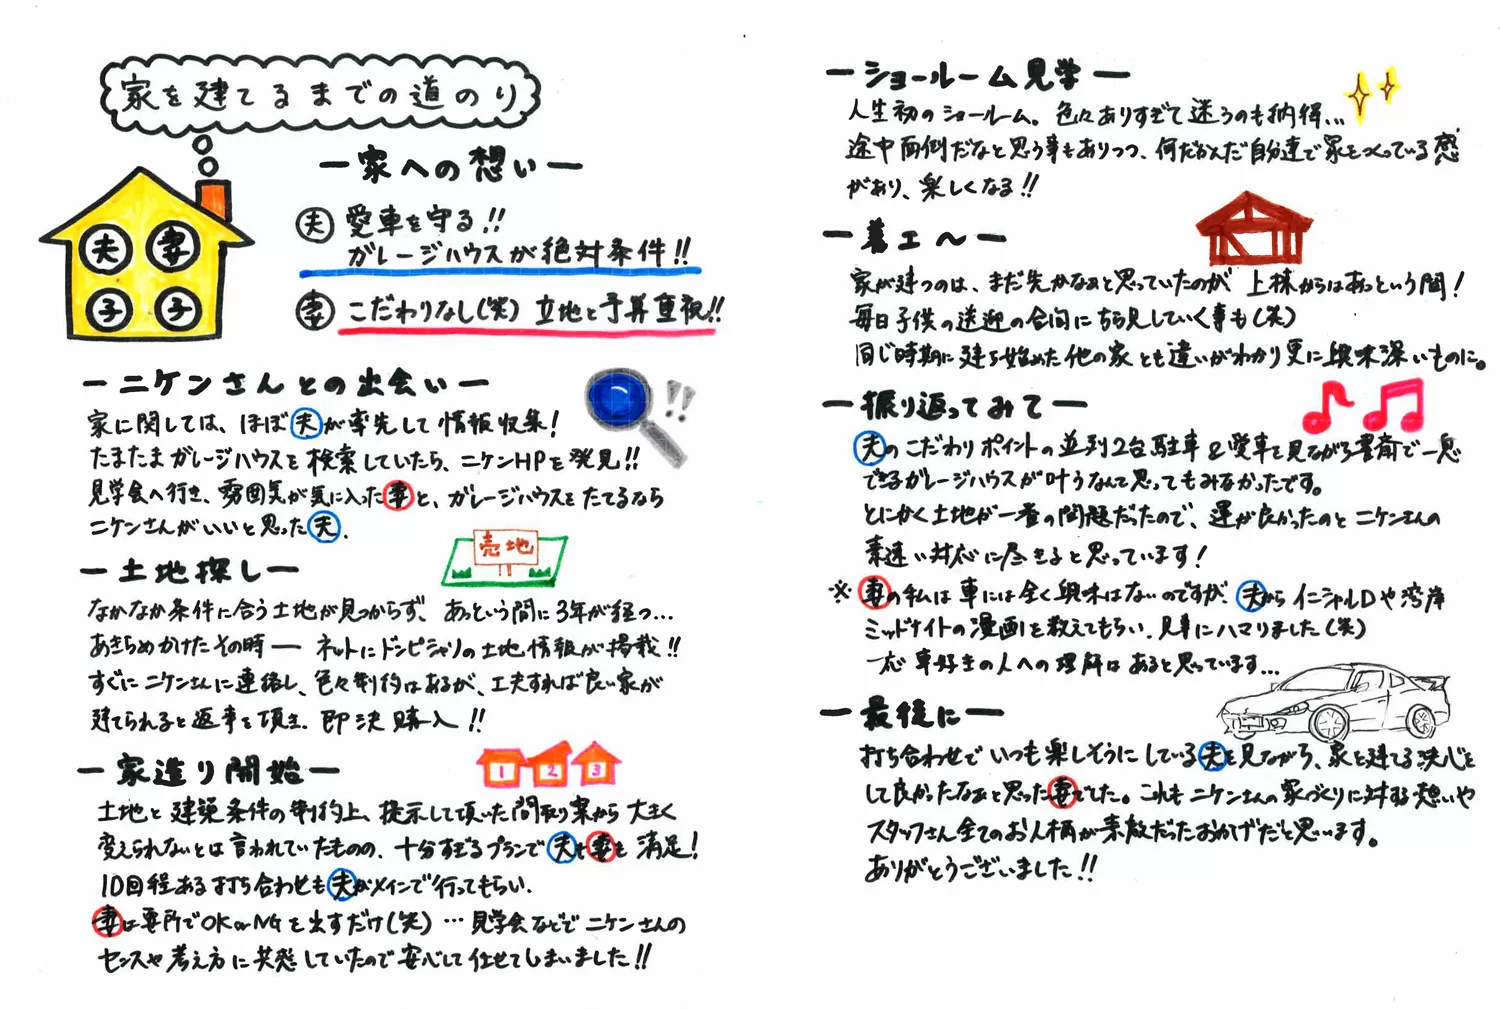 家を建てるまでの道のり
夫 妻
子 子
ー家への想いー
夫 愛車を守る!!
ガレージハウスが絶対条件!!
妻 こだわりなし(笑) 立地と予算重視!!
ーニケンさんとの出会いー
家に関しては、ほぼ夫が率先して情報収集!
たまたまガレージハウスを検索していたら、ニケンHPを発見!!
見学会へ行き、雰囲気が気に入った妻と、ガレージハウスをたてるなら
ニケンさんがいいと思った夫.
!!
ー土地探しー
売地
なかなか条件に合う土地が見つからず、あっという間に3年が経つ...
あきらめかけたその時ー ネットにドンピシャリの土地情報が掲載!!
すぐにニケンさんに連絡し、色々制約はあるが、工夫すれば良い家が
建てられると返事を頂き、即決購入!!
ー家造り開始ー
1 2 3
土地と建築条件の制約上、提示して頂いた間取り案から大きく
変えられないとは言われていたものの、十分すぎるプランで夫も妻も満足!
10回程ある打ち合わせも夫がメインで行ってもらい.
妻は要所でOK or NGを出すだけ(笑)…見学会などでニケンさんの
センスや考え方に共感していたので安心して任せてしまいました!!
ーショールーム見学ー
人生初のショールーム。色々ありすぎて迷うのも納得...
途中面倒だなと思う事もありつつ、何だかんだ自分達で家をつくっている感
があり、楽しくなる!!
ー着工〜ー
家が建つのは、まだ先かなぁと思っていたのが 上棟からはあっという間!
毎日子供の送迎の合間にちら見していく事も(笑)
同じ時期に建ち始めた他の家とも違いがわかり更に興味深いものに。
ー振り返ってみてー
夫のこだわりポイントの並列2台駐車&愛車を見ながら書斎で一息
できるガレージハウスが叶うなんて思ってもみなかったです。
とにかく土地が一番の問題だったので、運が良かったのとニケンさんの
素速い対応に尽きると思っています!
※妻の私は車には全く興味はないのですが、夫からイニシャルDや湾岸
ミッドナイトの漫画を教えてもらい、見事にハマりました(笑)
一応車好きの人への理解はあると思っています...
ー最後にー
打ち合わせでいつも楽しそうにしている夫を見ながら、家を建てる決心を
して良かったなぁと思った妻でした。これもニケンさんの家づくりに対する想いや
スタッフさん全てのお人柄が素敵だったおかげだと思います。
ありがとうございました!!